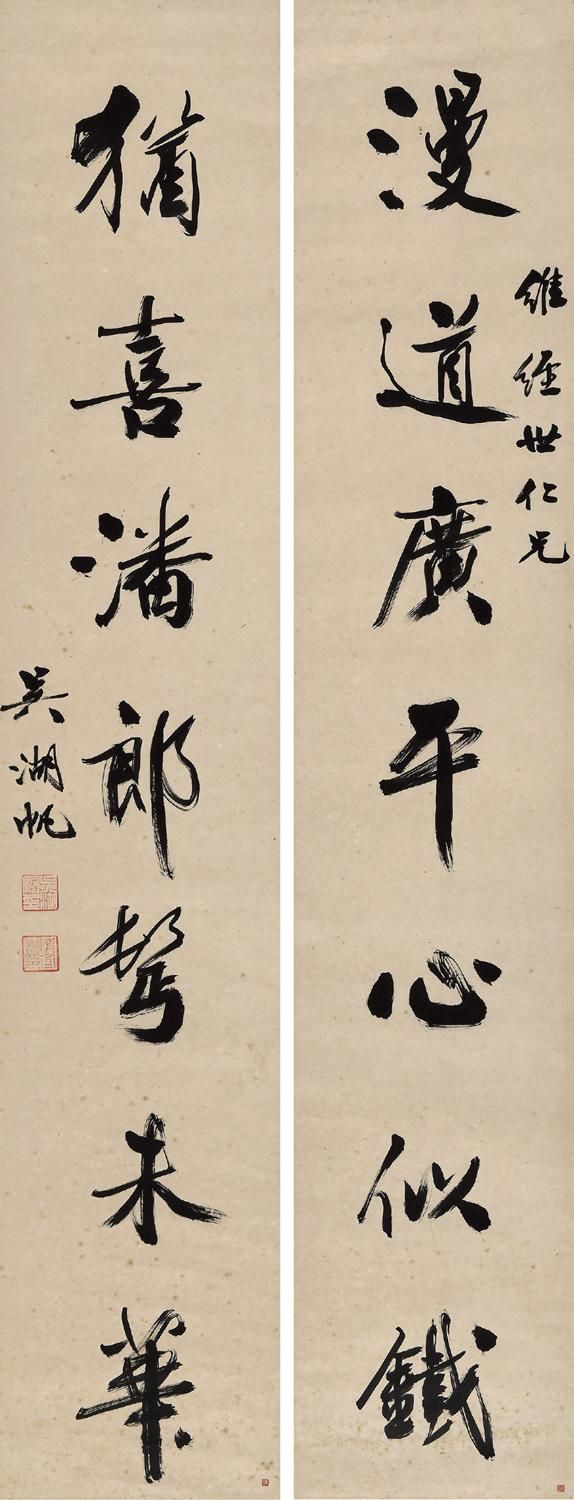 漫道廣平心似鐵
維經世仁兄
猶喜潘郎鬢未華
吳湖帆